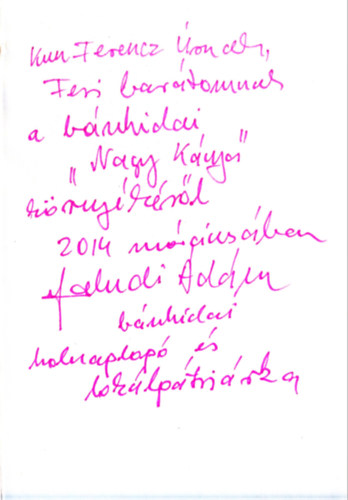 Kun Ferenc Úrnak,
Feri barátomnak
a bánhidai
„Nagy Kánya”
környékéről
2014 márciusában
Faludi Ádám
bánhidai
holnaplopó és
lokálpátriárka